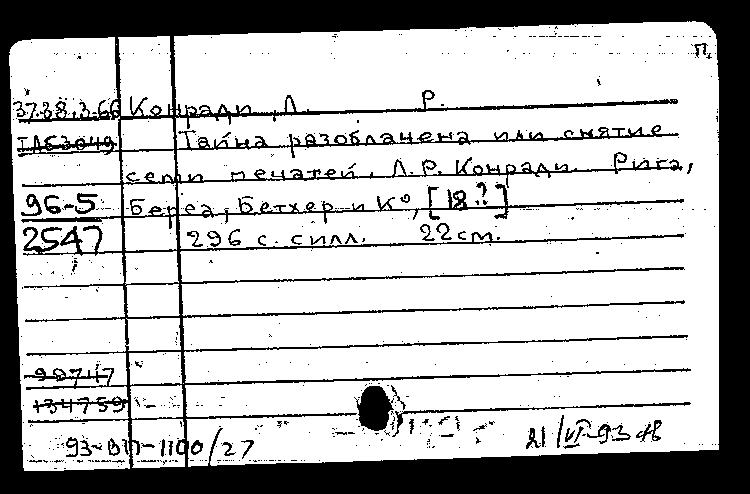 П.
37.38.3.66 Конради, Л. Р.
Тайна разоблачена или снятие
семи печатей. Л.Р. Конради. Рига,
96-5 Берга, Бетхер и К°, [18.?]
2547 296 с. с илл. 22 см.
90747
134759
93-ВП-1100/27
21/VI-93